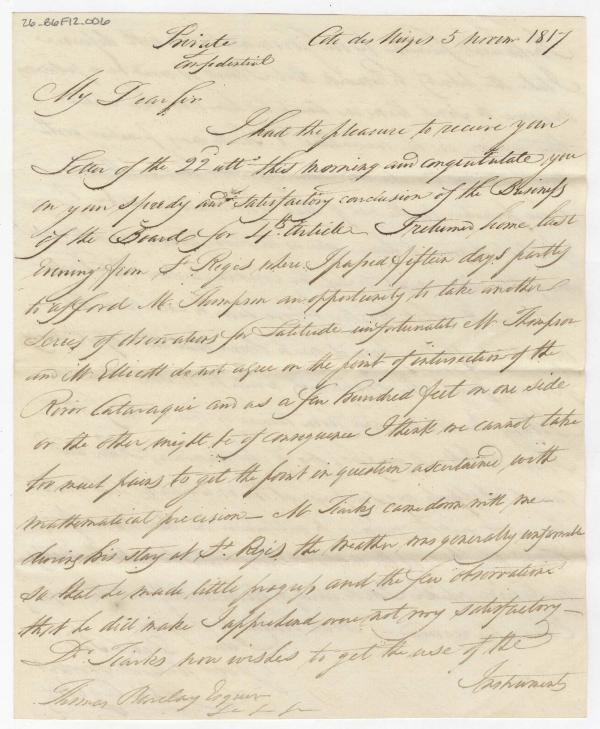 26-B6F12.006
Private Cote des Neiges 5 Novemr 1817
Confidential
My Dear Sir
I had the pleasure to receive your
Letter of the 22d ulto this morning and congratulate you
on your speedy and satisfactory conclusion of the Business
of the Board for 4th Article – I returned home last
evening from St Regis where I passed fifteen days partly
to afford Mr Thompson an opportunity to take another
series of observations for Latitude – unfortunately Mr Thompson
and Mr Ellicott do not agree on the point of intersection of the
River Cataraqui and as a few hundred feet on one side
or the other might be of consequence I think we cannot take
too much pains to get the point in question ascertained with
mathematical precision – Mr Tiarks came down with me –
during his stay at St Regis the weather was generally unfavorable
so that he made little progress and the few observations
that he did make I apprehend were not very satisfactory –
Dr Tiarks now wishes to get the use of the
Instruments
Thomas Barclay Esquire